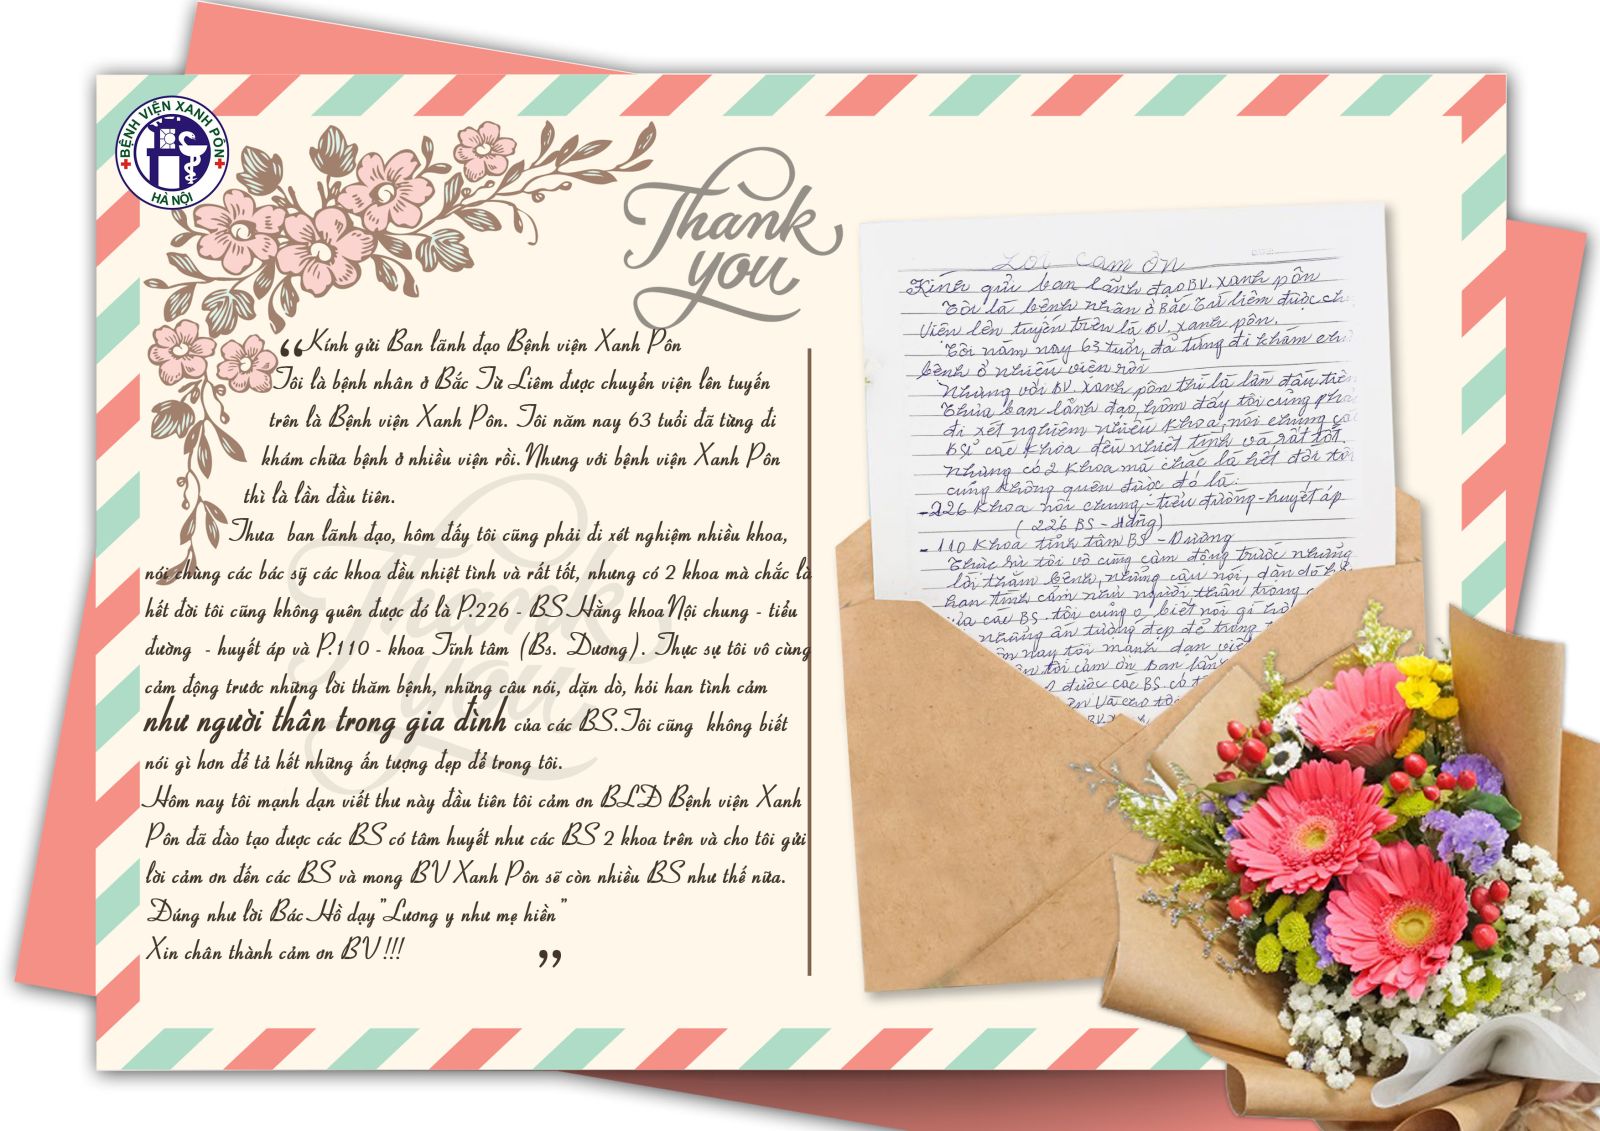 BỆNH VIỆN XANH PÔN
HÀ NỘI
Thank
you
“Kính gửi Ban lãnh đạo Bệnh viện Xanh Pôn
Tôi là bệnh nhân ở Bắc Từ Liêm được chuyển viện lên tuyến
trên là Bệnh viện Xanh Pôn. Tôi năm nay 63 tuổi đã từng đi
khám chữa bệnh ở nhiều viện rồi. Nhưng với bệnh viện Xanh Pôn
thì là lần đầu tiên.
Thưa ban lãnh đạo, hôm đấy tôi cũng phải đi xét nghiệm nhiều khoa,
nói chung các bác sỹ các khoa đều nhiệt tình và rất tốt, nhưng có 2 khoa mà chắc là
hết đời tôi cũng không quên được đó là P.226 - BS.Hằng khoa Nội chung - tiểu
đường - huyết áp và P.110 - khoa Tĩnh tâm (Bs. Dương). Thực sự tôi vô cùng
cảm động trước những lời thăm bệnh, những câu nói, dặn dò, hỏi han tình cảm
như người thân trong gia đình của các BS.Tôi cũng không biết
nói gì hơn để tả hết những ấn tượng đẹp để trong tôi.
Hôm nay tôi mạnh dạn viết thư này đầu tiên tôi cảm ơn BLĐ Bệnh viện Xanh
Pôn đã đào tạo được các BS có tâm huyết như các BS 2 khoa trên và cho tôi gửi
lời cảm ơn đến các BS và mong BV Xanh Pôn sẽ còn nhiều BS như thế nữa.
Đúng như lời Bác Hồ dạy"Lương y như mẹ hiền"
Xin chân thành cảm ơn BV!!!
”
Thank
you
Lời cảm ơn
Kính gửi ban lãnh đạo BV. Xanh pôn
Tôi là bệnh nhân ở Bắc Từ liêm được
Viện lên tuyến trên là BV. Xanh pôn.
Tôi năm nay 63 tuổi, đã từng đi khám
bệnh ở nhiều viện rồi
Nhưng với BV. Xanh pôn thì là lần đầu tiên
Thưa ban lãnh đạo, hôm đấy tôi cũng phải
đi xét nghiệm nhiều khoa, nói chung
BSỉ các khoa đều nhiệt tình và rất tốt.
Nhưng có 2 khoa mà chắc là hết đời tôi
cũng không quên được đó là:
-226 khoa nội chung - tiểu đường - huyết áp
(226 BS - Hằng)
- 110 khoa tĩnh tâm BS - Dương
Thực sự tôi vô cùng cảm động trước những
lời thăm bệnh, những câu nói, dặn dò
han tình cảm như người thân trong
của các BS. tôi cũng o biết nói gì
những ấn tượng đẹp để trong
nay tôi mạnh dạn
tôi cảm ơn Ban
được các BS. có
và cho tôi
BV.